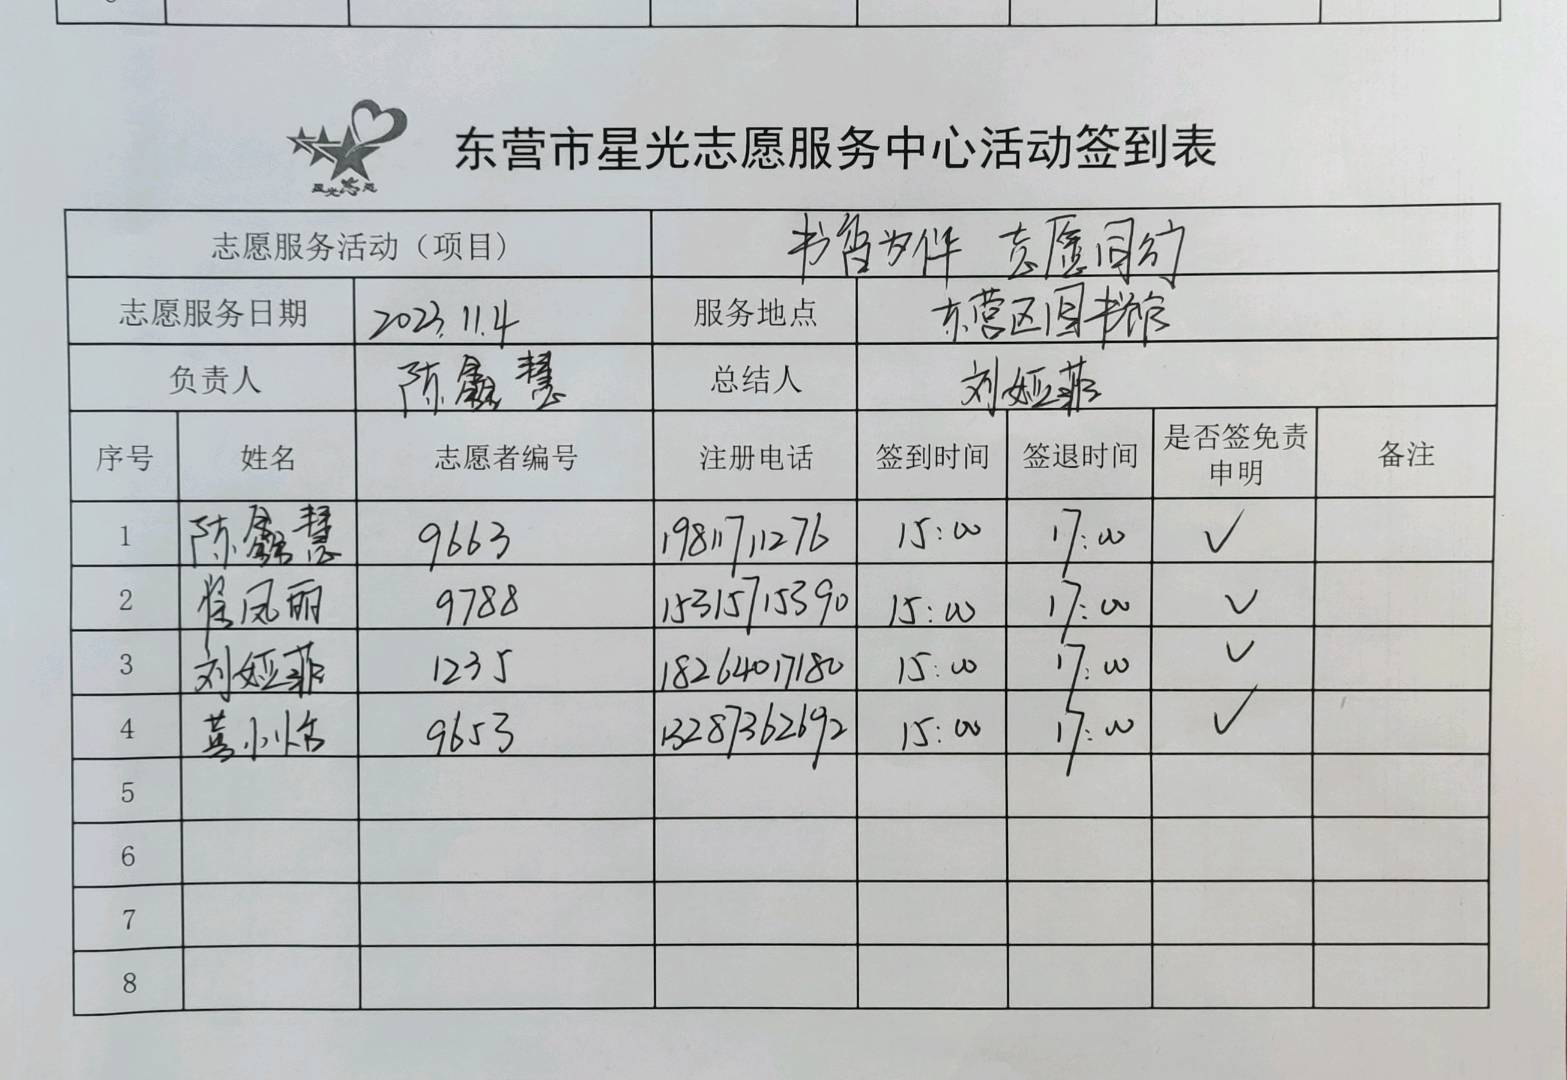 星光志愿
东营市星光志愿服务中心活动签到表
志愿服务活动（项目） 书香为伴 志愿同行
志愿服务日期 2023.11.4 服务地点 东营区图书馆
负责人 陈鑫慧 总结人 刘娅菲
序号 姓名 志愿者编号 注册电话 签到时间 签退时间 是否签免责申明 备注
1 陈鑫慧 9663 19811711276 15:00 17:00 ✓
2 徐凤丽 9788 15315715390 15:00 17:00 ✓
3 刘娅菲 1235 18264017180 15:00 17:00 ✓
4 小 9653 13287362692 15:00 17:00 ✓
5
6
7
8